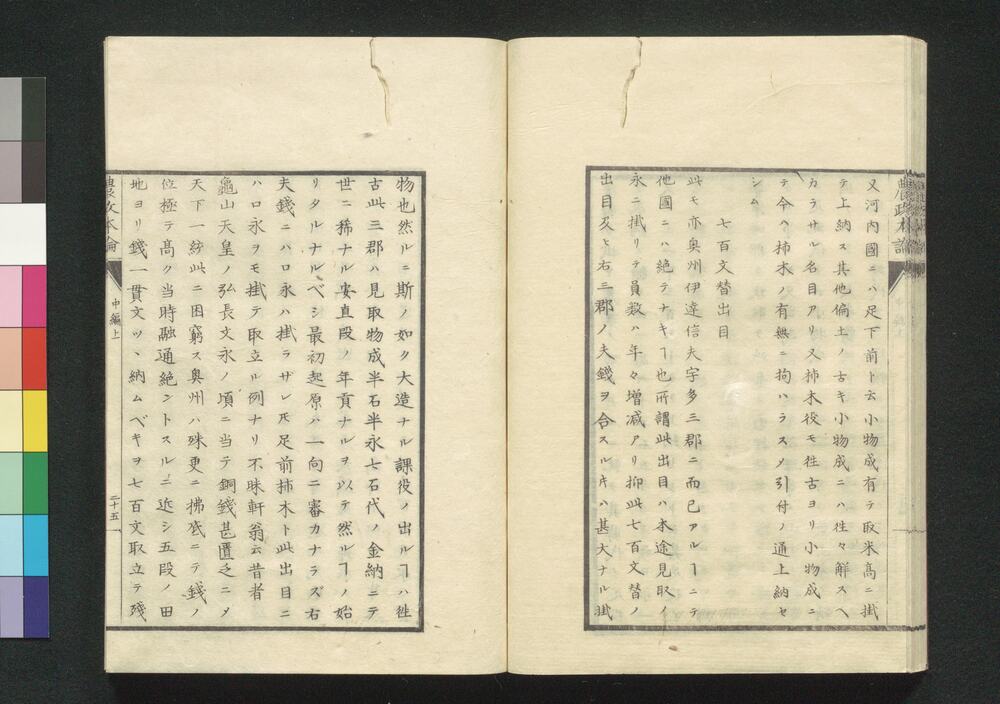 農政本論
又河内國ニハ足下前ト云小物成有テ取米髙ニ掛
テ上納ス其他偏土ノ古キ小物成ニハ徃々解スヘ
カラサル名目アリ又柿木役モ徃古ヨリ小物成ニ
テ今ヘ柿木ノ有無ニ拘ハラスメ引付ノ通上納セ
シム
七百文替出目
此モ亦奥州伊達信夫宇多三郡ニ而已アルヿニテ
他國ニハ絶テナキヿ也所謂此出目ハ本途見取ノ
永ニ掛リテ員数ハ年々増减アリ抑此七百文替ノ
出目又ト右三郡ノ夫錢ヲ合スル片ハ甚大ナル掛
物也然ルニ斯ノ如ク大造ナル課役ノ出ルヿハ徃
古此三郡ハ見取物成半石半永七石代ノ金納ニテ
世ニ稀ナル安直段ノ年貢ナルヲ以テ然ルヿノ始
リタルナルベシ最初起原ハ一向ニ審カナラズ右
夫錢ニハ口永ハ掛ラザレ𪜈足前柿木ト此出目ニ
ハ口永ヲモ掛テ取立ル例ナリ不昧軒翁云昔者
龜山天皇ノ弘長文永ノ頃ニ当テ銅錢甚匱乏ニメ
天下一統此ニ困窮ス奥州ハ殊更ニ拂底ニテ錢ノ
位極テ髙ク当時融通絶ントスルニ近シ五段ノ田
地ヨリ錢一貫文ツヽ納ムベキヲ七百文取立テ殘
農政本論
中編上
二十五